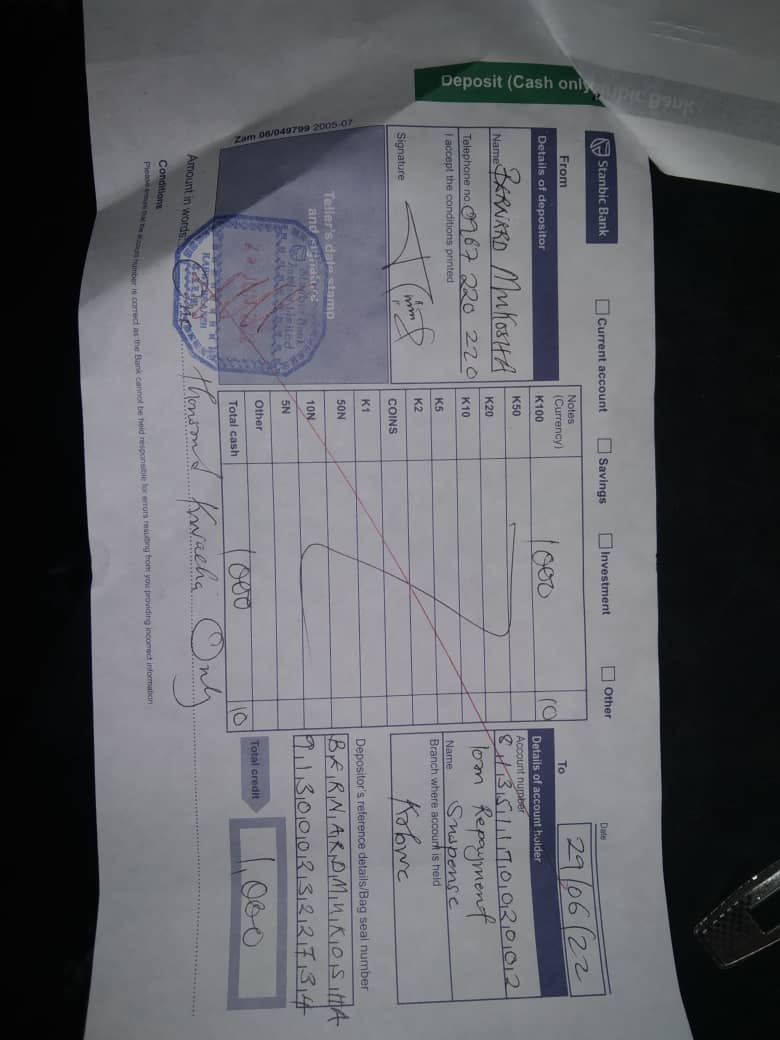 Deposit (Cash only)
Stanbic Bank
Stanbic Bank
Current account
Savings
Investment
Other
Date
29/06/22
From
Details of depositor
Name BERNARD MUKOSHA
Telephone no. 0967 220 220
I accept the conditions printed
Signature
Notes
(Currency)
K100 1000 10
K50
K20
K10
K5
K2
COINS
K1
50N
10N
5N
Other
Total cash 1000 10
To
Details of account holder
Account number
Loan Repayment
Name Suspense
Branch where account is held
Kabwe
Depositor's reference details/Bag seal number
BERNARD MUKOSHA
913002322734
Total credit 1,000
Zam 06/049799 2005-07
Teller's date stamp
and signature
Amount in words One thousand Kwacha Only
Conditions
Please ensure that the account number is correct as the Bank cannot be held responsible for errors resulting from you providing incorrect information